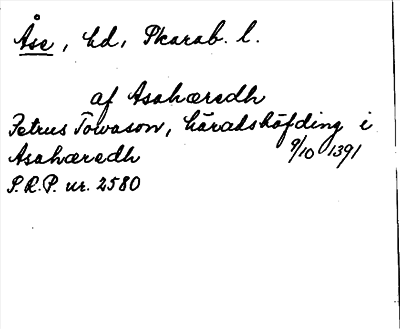 Åse, hd, Skarab. l.
af Asahæredh
Petrus Towason, häradshöfding i
Asahæredh 9/10 1391
S.R.P. nr. 2580